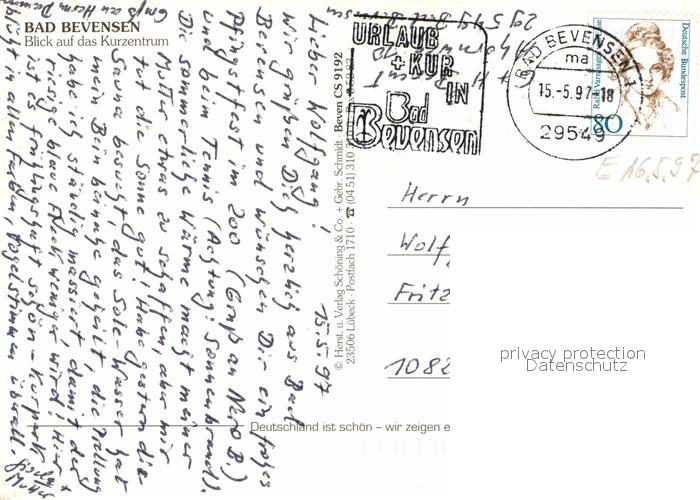 BAD BEVENSEN
Blick auf das Kurzentrum
15.5.97
Lieber Wolfgang!
Wir grüßen Dich herzlich aus Bad
Bevensen und wünschen Dir ein frohes
Pfingstfest im Zoo (Gruß an Nero B.)
und beim Tennis (Achtung: Sonnenbrand!).
Die sommerliche Wärme macht meiner
Mutter etwas zu schaffen, aber mir
tut die Sonne gut! Habe gestern die
Sauna besucht, das Sole-Wasser hat
mein Bein beinahe geheilt, die
habe ich ständig massiert, damit der
riesige blaue Fleck weniger wird! Hier
ist es frühlingshaft schön - Kurpark +
blüht in allen Farben, Vogelstimmen überall.
Gruß an Herrn
© Herst. u. Verlag Schöning & Co. + Gebr. Schmidt · Beven CS 9192
23506 Lübeck · Postfach 1710 · ☎ (04 51) 310
29549 Bad Bevensen
URLAUB
+ KUR
IN
Bad
Bevensen
BAD BEVENSEN 1
ma
15.-5.97-18
29549
Deutsche Bundespost
80
E 16.5.97
Herrn
Wolf
Fritz
1082
privacy protection
Datenschutz
Deutschland ist schön – wir zeigen e